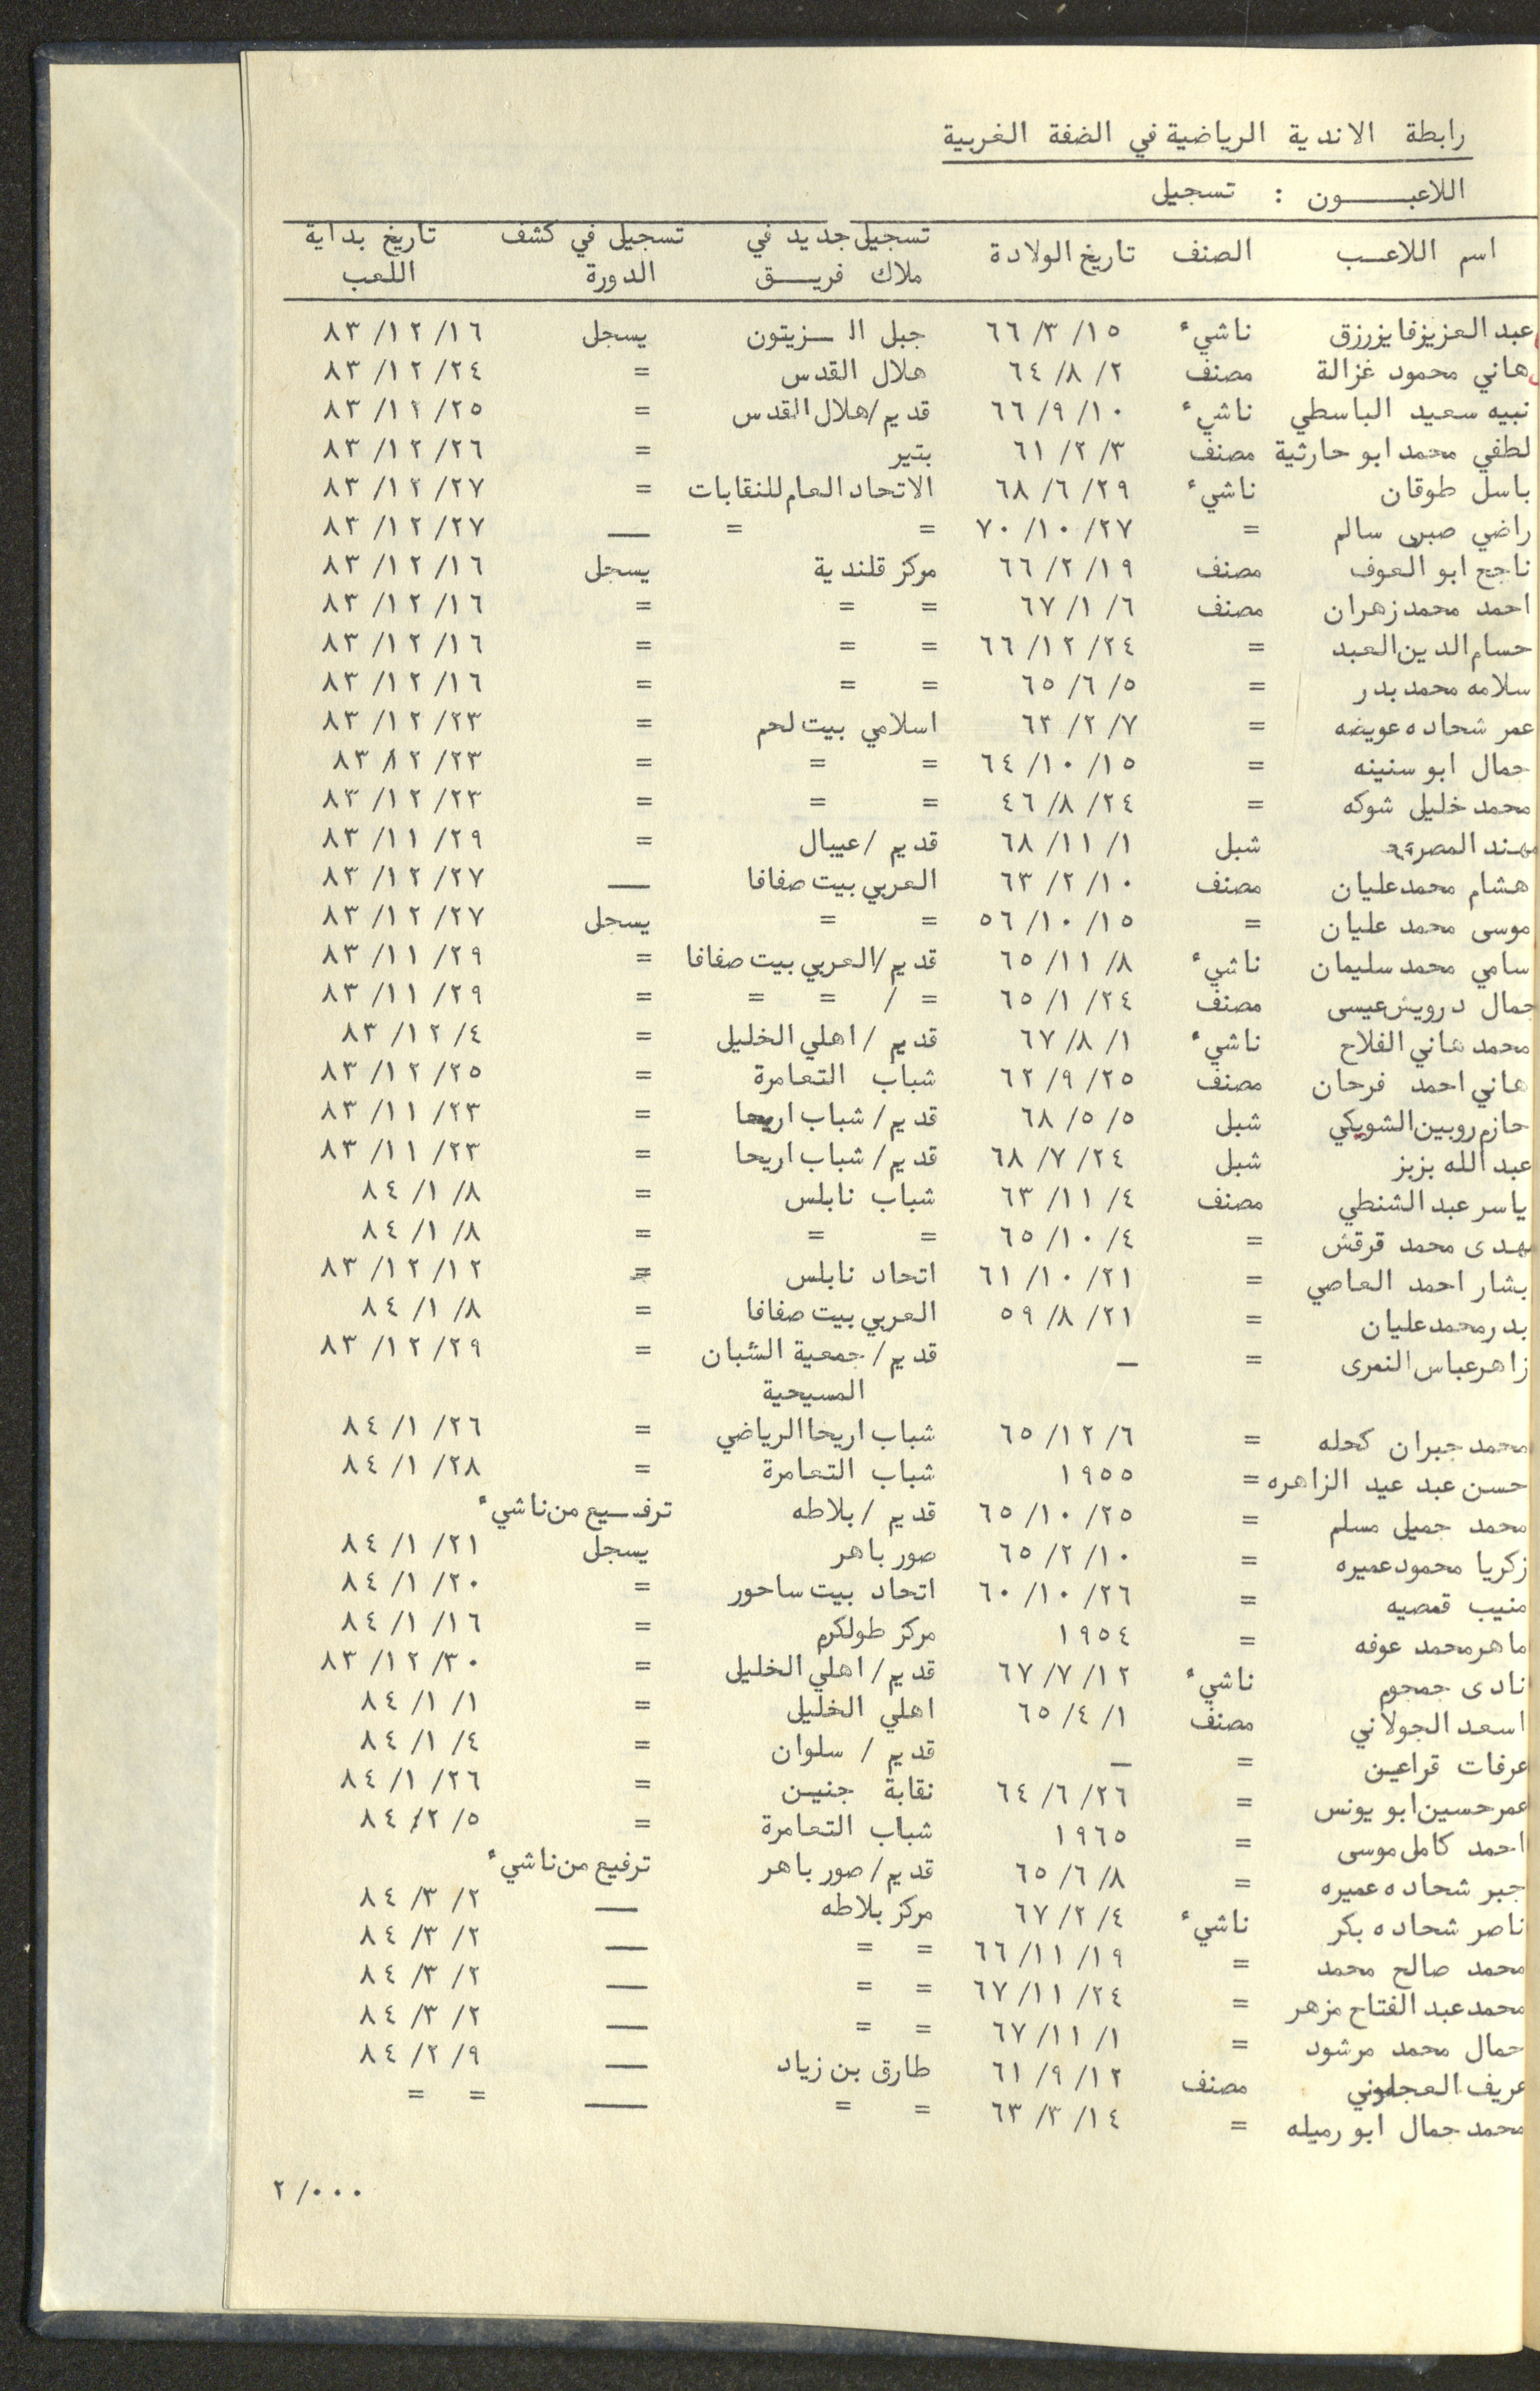 رابطة الاندية الرياضية في الضفة الغربية
اللاعبـــــون : تسجيل
اسم اللاعـب الصنف تاريخ الولادة تسجيل جديد في ملاك فريـــق تسجيل في كشف الدورة تاريخ بداية اللعب
عبد العزيز فايز رزق ناشيء ١٥/ ٣/ ٦٦ جبل الـزيتون يسجل ١٦/ ١٢/ ٨٣
هاني محمود غزالة مصنف ٢/ ٨/ ٦٤ هلال القدس = ٢٤/ ١٢/ ٨٣
نبيه سعيد الباسطي ناشيء ١٠/ ٩/ ٦٦ قديم/هلال القدس = ٢٥/ ١٢/ ٨٣
لطفي محمد ابو حارثية مصنف ٣/ ٢/ ٦١ بتير = ٢٦/ ١٢/ ٨٣
باسل طوقان ناشيء ٢٩/ ٦/ ٦٨ الاتحاد العام للنقابات = ٢٧/ ١٢/ ٨٣
راضي صبرى سالم = ٢٧/ ١٠/ ٧٠ = = — ٢٧/ ١٢/ ٨٣
ناجح ابو العوف مصنف ١٩/ ٢/ ٦٦ مركز قلندية يسجل ١٦/ ١٢/ ٨٣
احمد محمد زهران مصنف ٦/ ١/ ٦٧ = = = ١٦/ ١٢/ ٨٣
حسام الدين العبد = ٢٤/ ١٢/ ٦٦ = = = ١٦/ ١٢/ ٨٣
سلامه محمد بدر = ٥/ ٦/ ٦٥ = = = ١٦/ ١٢/ ٨٣
عمر شحاده عويضه = ٧/ ٢/ ٦٢ اسلامي بيت لحم = ٢٣/ ١٢/ ٨٣
جمال ابو سنينه = ١٥/ ١٠/ ٦٤ = = = ٢٣/ ١٢/ ٨٣
محمد خليل شوكه = ٢٤/ ٨/ ٤٦ = = = ٢٣/ ١٢/ ٨٣
مهند المصرى شبل ١/ ١١/ ٦٨ قديم /عيبال = ٢٩/ ١١/ ٨٣
هشام محمد عليان مصنف ١٠/ ٢/ ٦٣ العربي بيت صفافا — ٢٧/ ١٢/ ٨٣
موسى محمد عليان = ١٥/ ١٠/ ٥٦ = = يسجل ٢٧/ ١٢/ ٨٣
سامي محمد سليمان ناشيء ٨/ ١١/ ٦٥ قديم/العربي بيت صفافا = ٢٩/ ١١/ ٨٣
جمال درويش عيسى مصنف ٢٤/ ١/ ٦٥ = / = = = ٢٩/ ١١/ ٨٣
محمد هاني الفلاح ناشيء ١/ ٨/ ٦٧ قديم /اهلي الخليل = ٤/ ١٢/ ٨٣
هاني احمد فرحان مصنف ٢٥/ ٩/ ٦٢ شباب التعامرة = ٢٥/ ١٢/ ٨٣
حازم روبين الشويكي شبل ٥/ ٥/ ٦٨ قديم/ شباب اريحا = ٢٣/ ١١/ ٨٣
عبد الله بزبز شبل ٢٤/ ٧/ ٦٨ قديم/ شباب اريحا = ٢٣/ ١١/ ٨٣
ياسر عبد الشنطي مصنف ٤/ ١١/ ٦٣ شباب نابلس = ٨/ ١/ ٨٤
مهدى محمد قرقش = ٤/ ١٠/ ٦٥ = = = ٨/ ١/ ٨٤
بشار احمد العاصي = ٢١/ ١٠/ ٦١ اتحاد نابلس = ١٢/ ١٢/ ٨٣
بدر محمد عليان = ٢١/ ٨/ ٥٩ العربي بيت صفافا = ٨/ ١/ ٨٤
زاهر عباس النمرى = — قديم/ جمعية الشبان = ٢٩/ ١٢/ ٨٣
المسيحية
محمد جبران كحله = ٦/ ١٢/ ٦٥ شباب اريحا الرياضي = ٢٦/ ١/ ٨٤
حسن عبد عيد الزاهره = ١٩٥٥ شباب التعامرة = ٢٨/ ١/ ٨٤
محمد جميل مسلم = ٢٥/ ١٠/ ٦٥ قديم /بلاطه ترفـيع من ناشيء
زكريا محمود عميره = ١٠/ ٢/ ٦٥ صور باهر يسجل ٢١/ ١/ ٨٤
منيب قمصيه = ٢٦/ ١٠/ ٦٠ اتحاد بيت ساحور = ٢٠/ ١/ ٨٤
ماهر محمد عوفه = ١٩٥٤ مركز طولكرم = ١٦/ ١/ ٨٤
نادى جمجوم ناشيء ١٢/ ٧/ ٦٧ قديم/ اهلي الخليل = ٣٠/ ١٢/ ٨٣
اسعد الجولاني مصنف ١/ ٤/ ٦٥ اهلي الخليل = ١/ ١/ ٨٤
عرفات قراعين = — قديم / سلوان = ٤/ ١/ ٨٤
عمر حسين ابو يونس = ٢٦/ ٦/ ٦٤ نقابة جنيـن = ٢٦/ ١/ ٨٤
احمد كامل موسى = ١٩٦٥ شباب التعامرة = ٥/ ٢/ ٨٤
جبر شحاده عميره = ٨/ ٦/ ٦٥ قديم/ صور باهر ترفيع من ناشيء
ناصر شحاده بكر ناشيء ٤/ ٢/ ٦٧ مركز بلاطه — ٢/ ٣/ ٨٤
محمد صالح محمد = ١٩/ ١١/ ٦٦ = = — ٢/ ٣/ ٨٤
محمد عبد الفتاح مزهر = ٢٤/ ١١/ ٦٧ = = — ٢/ ٣/ ٨٤
جمال محمد مرشود = ١/ ١١/ ٦٧ = = — ٢/ ٣/ ٨٤
عريف العجلوني مصنف ١٢/ ٩/ ٦١ طارق بن زياد — ٩/ ٢/ ٨٤
محمد جمال ابو رميله = ١٤/ ٣/ ٦٣ = = — = =
٢/٠٠٠